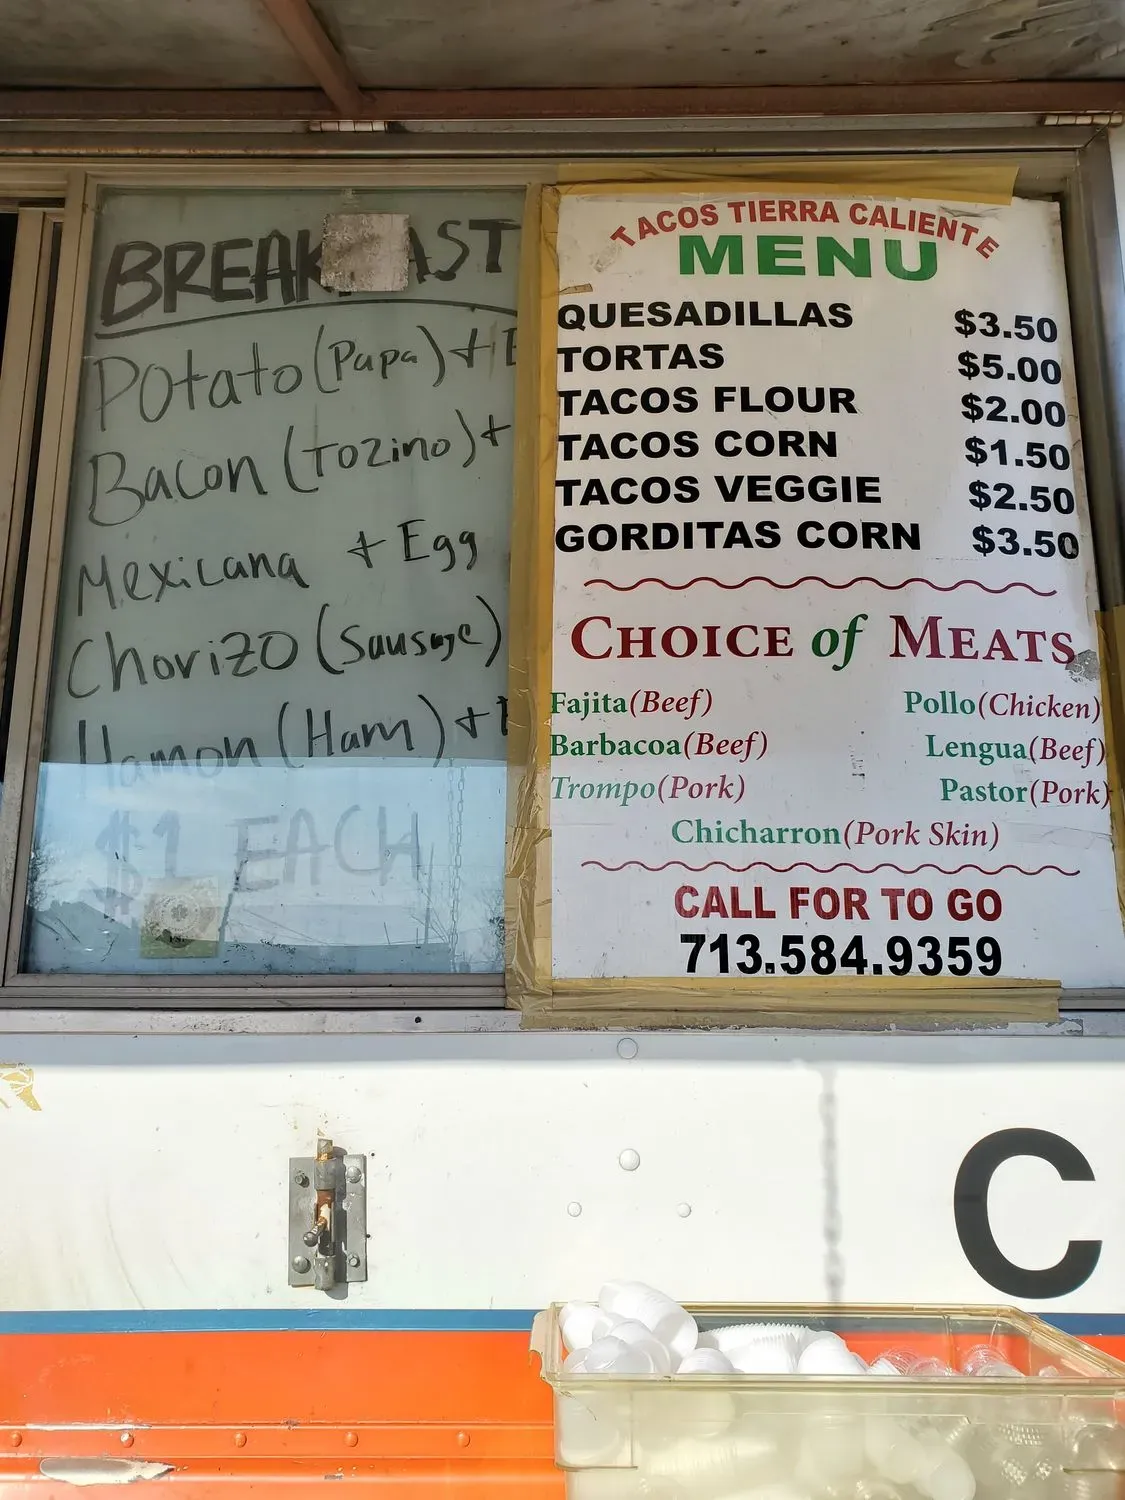 BREAKFAST
Potato (Papa) +
Bacon (Tozino) +
Mexicana + Egg
Chorizo (Sausage)
Hamon (Ham) +
$1 EACH
TACOS TIERRA CALIENTE
MENU
QUESADILLAS $3.50
TORTAS $5.00
TACOS FLOUR $2.00
TACOS CORN $1.50
TACOS VEGGIE $2.50
GORDITAS CORN $3.50
CHOICE of MEATS
Fajita (Beef) Pollo (Chicken)
Barbacoa (Beef) Lengua (Beef)
Trompo (Pork) Pastor (Pork)
Chicharron (Pork Skin)
CALL FOR TO GO
713.584.9359
C